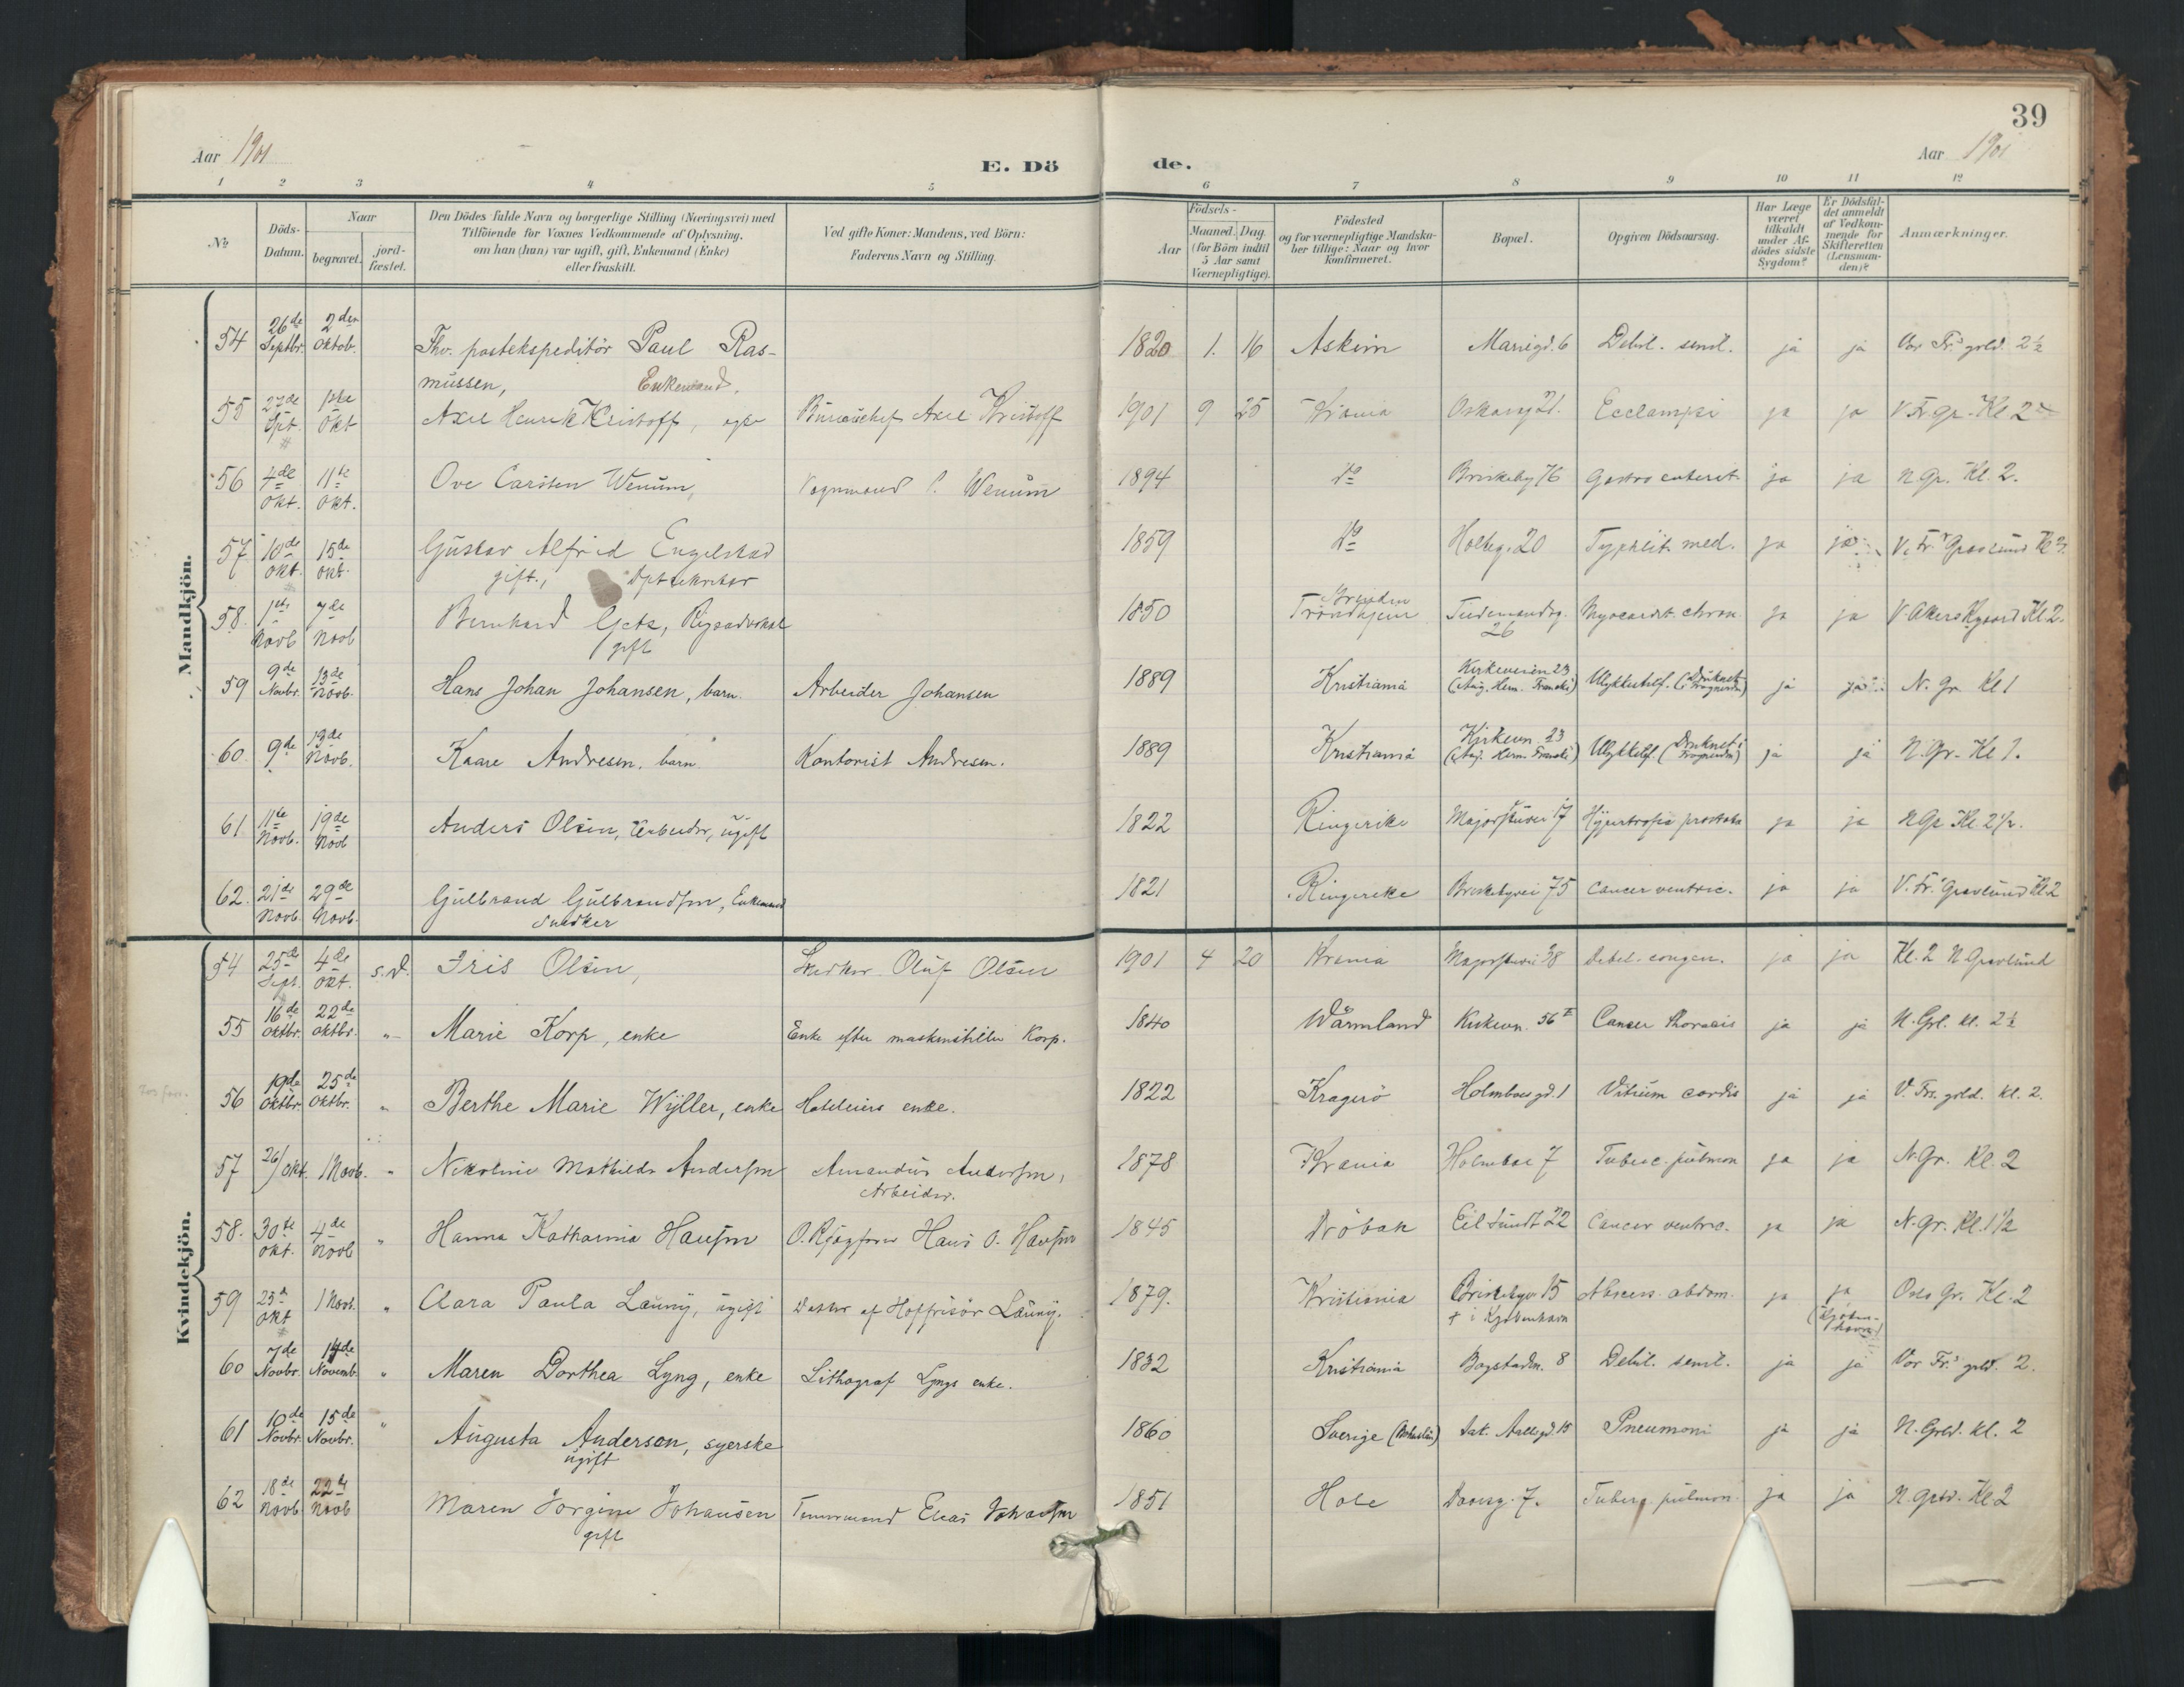 39
Aar 1901
E. Döde.
Aar 1901
1 2 3 4 5 6 7 8 9 10 11 12
№
Döds-Datum.
Naar
begravet.
jord-fæstet.
Den Dödes fulde Navn og borgerlige Stilling (Næringsvei) med
Tilföiende for Voxnes Vedkommende af Oplysning,
om han (hun) var ugift, gift, Enkemand (Enke)
eller fraskilt.
Ved gifte Koner: Mandens, ved Börn:
Faderens Navn og Stilling.
Födsels-
Aar
Maaned. Dag.
(for Börn indtil
5 Aar samt
Værnepligtige).
Födested
og for værnepligtige Mandska-
ber tillige: Naar og hvor
Konfirmeret.
Bopæl.
Opgiven Dödsaarsag.
Har Læge
været
tilkaldt
under Af-
dödes sidste
Sygdom?
Er Dödsfal-
det anmeldt
af Vedkom-
mende for
Skifteretten
(Lensman-
den)?
Anmærkninger.
Mandkjön.
54 26de Septbr. 2den Oktob. Fhv. postekspeditör Paul Ras-
mussen, Enkemand. 1820 1. 16 Askim Marriegd. 6 Debil. senil. ja ja Vor Fr.s grld. 2½
55 27de Spt. 1ste Okt Axel Henrik Kristoff, Bureauchef Axel Kristoff 1901 9 25 Krania Oskarsg 21. Ecclampsi ja ja V. Fr. gr. Kl 2
56 4de Okt. 11te Okt. Ove Carsten Wenum, Vognmand Wenum 1894 do Briskeby 76 Gastro enterit. ja ja N. Gr. Kl. 2.
57 10de Okt. 15de Okt. Gustav Alfred Engelstad
gift., 1859 do Holteg. 20 Typhlit. med. ja ja V. Fr.s Gravlund Kl 2
58. 1ste Novb 7de Novb Bernhard Getz, Rigsadvokat
gift 1850 Trondhjem Tidemandsg. 26 Myocardit. chron. ja ja V. Akers Kgaard Kl. 2.
59 9de Novbr. 13de Novb. Hans Johan Johansen, barn. Arbeider Johansen 1889 Kristiania Kirkeveien 23 Ulykkestilf. ja ja N. Gr. Kl 1
60. 9de 13de Novb. Kaare Andresen, barn. Kontorist Andresen. 1889 Kristiania Kirkevn. 23 Ulykkestilf. (Druknet i Frognerdm) ja ja N. Gr. Kl 1.
61 11te Novb. 19de Novb Anders Olsen, Arbeider, ugift 1822 Ringerike Majorstuvei 17 Hypertrofia prostata ja ja N Gr Kl. 2½.
62. 21de Novb. 29de Novb. Gulbrand Gulbrandsen, Enkemand
Snedker 1821 Ringerike Briskebyvei 75 Cancer ventric. ja ja V. Fr.s Gravlund Kl. 2
Kvindekjön.
54 25de Sept. 4de Okt. s. d. Iris Olsen, Snedker Oluf Olsen 1901 4 20 Krania Majorstuvei 38 Debil. congen. ja ja Kl. 2 N Gravlund
55 16de Oktbr. 22de Oktbr. " Marie Korp, enke Enke efter maskinstiller Korp. 1840 Wärmland Kirkevn. 56 Cancer thoracis ja ja N. Grl. kl. 2½
56 19de Oktbr. 25de Oktbr. " Berthe Marie Wyller, enke Hoteleiers enke. 1822 Kragerö Holmboesgd. 1 Vitium cordis ja ja V. Frs. grld. kl. 2.
57 26/Okt. 1 Novb. " Nikoline Mathilde Andersen Amandus Andersen,
Arbeider. 1878 Krania Holmboe 7 Tuberc. pulmon ja ja N. Gr. Kl. 2
58. 30te Okt. 4de Novb " Hanna Katharina Hansen Hans O. Hansen 1845 Dröbak Eil Sundt 22 Cancer ventric. ja ja N. Gr. Kl. 1½
59 25de Okt 1 Novb. " Clara Paula Launy, ugift Datter af Hoffrisör Launy. 1879. Kristiania Briskebyv 15
† i Kjöbenhavn Abscess. abdom. ja ja
(Kjöben-
havn) Oslo Gr. Kl. 2
60 7de Novbr. 14de Novemb. " Maren Dorthea Lyng, enke Lithograf Lyngs enke. 1832 Kristiania Bogstadvn. 8 Debil. senil. ja ja Vor Fr.s grld. 2.
61 10de Novbr. 15de Novbr. " Augusta Anderson, syerske
ugift 1860 Sverige Jak. Aallsgd. 15 Pneumoni ja ja N. Grld. kl. 2
62 18de Novb. 22de Novb Maren Jorgine Johansen
gift Tömmermand Elias Johansen 1851 Hole Daasg. 7. Tuberc. pulmon. ja ja N. Grld. Kl 2